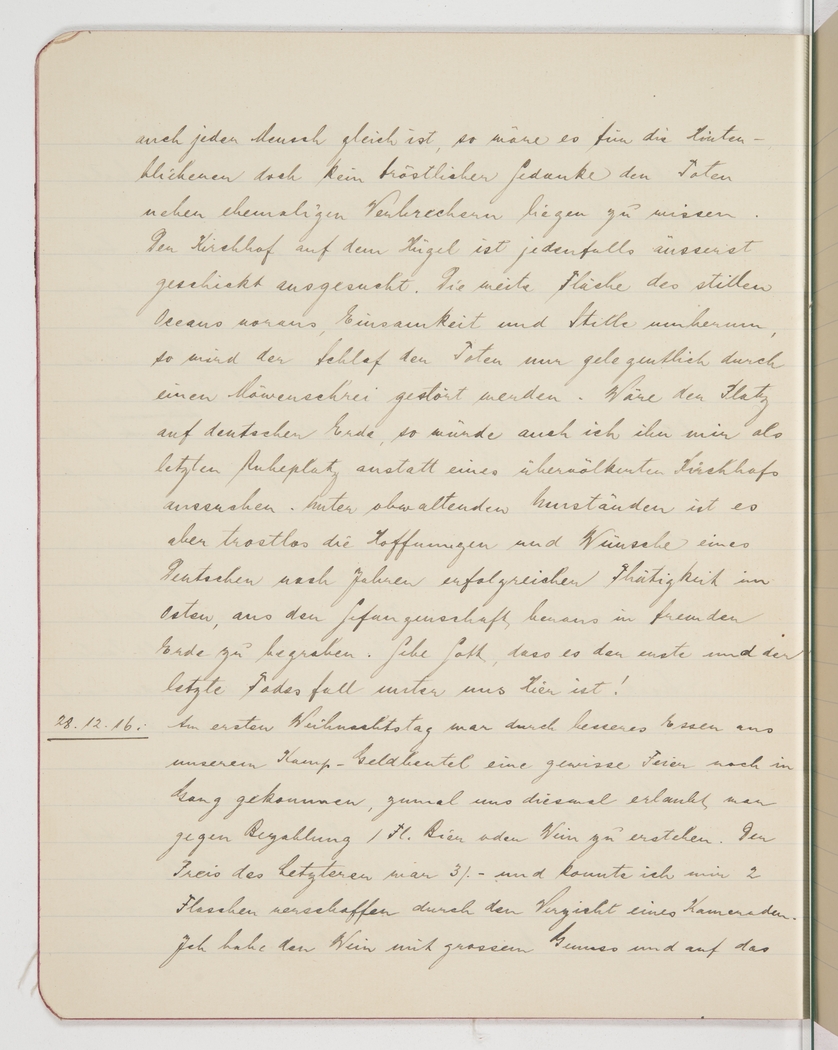 auch jeder Mensch gleich ist, so wäre es für die Hinter-
bliebenen doch kein tröstlicher Gedanke den Toten
neben ehemaligen Verbrechern liegen zu wissen.
Der Kirchhof auf dem Hügel ist jedenfalls äusserst
geschickt ausgesucht. Die weite Fläche des stillen
Oceans voraus, Einsamkeit und Stille umherum,
so wird der Schlaf der Toten nur gelegentlich durch
einen Möwenschrei gestört werden. Wäre der Platz
auf deutscher Erde, so würde auch ich ihn mir als
letzten Ruheplatz anstatt eines übervölkerten Kirchhofs
aussuchen. Unter obwaltenden Umständen ist es
aber trostlos die Hoffnungen und Wünsche eines
Deutschen nach Jahren erfolgreicher Thätigkeit im
Osten, aus der Gefangenschaft heraus in fremder
Erde zu begraben. Gebe Gott, dass es der erste und der
letzte Todesfall unter uns hier ist!
28.12.16.: Am ersten Weihnachtstag war durch besseres Essen aus
unserem Kamp-Geldbeutel eine gewisse Feier noch in
Gang gekommen, zumal uns diesmal erlaubt war
gegen Bezahlung 1 Fl. Bier oder Wein zu erstehen. Der
Preis des Letzteren war 3/- und konnte ich mir 2
Flaschen verschaffen durch den Verzicht eines Kameraden.
Ich habe den Wein mit grossem Genuss und auf das